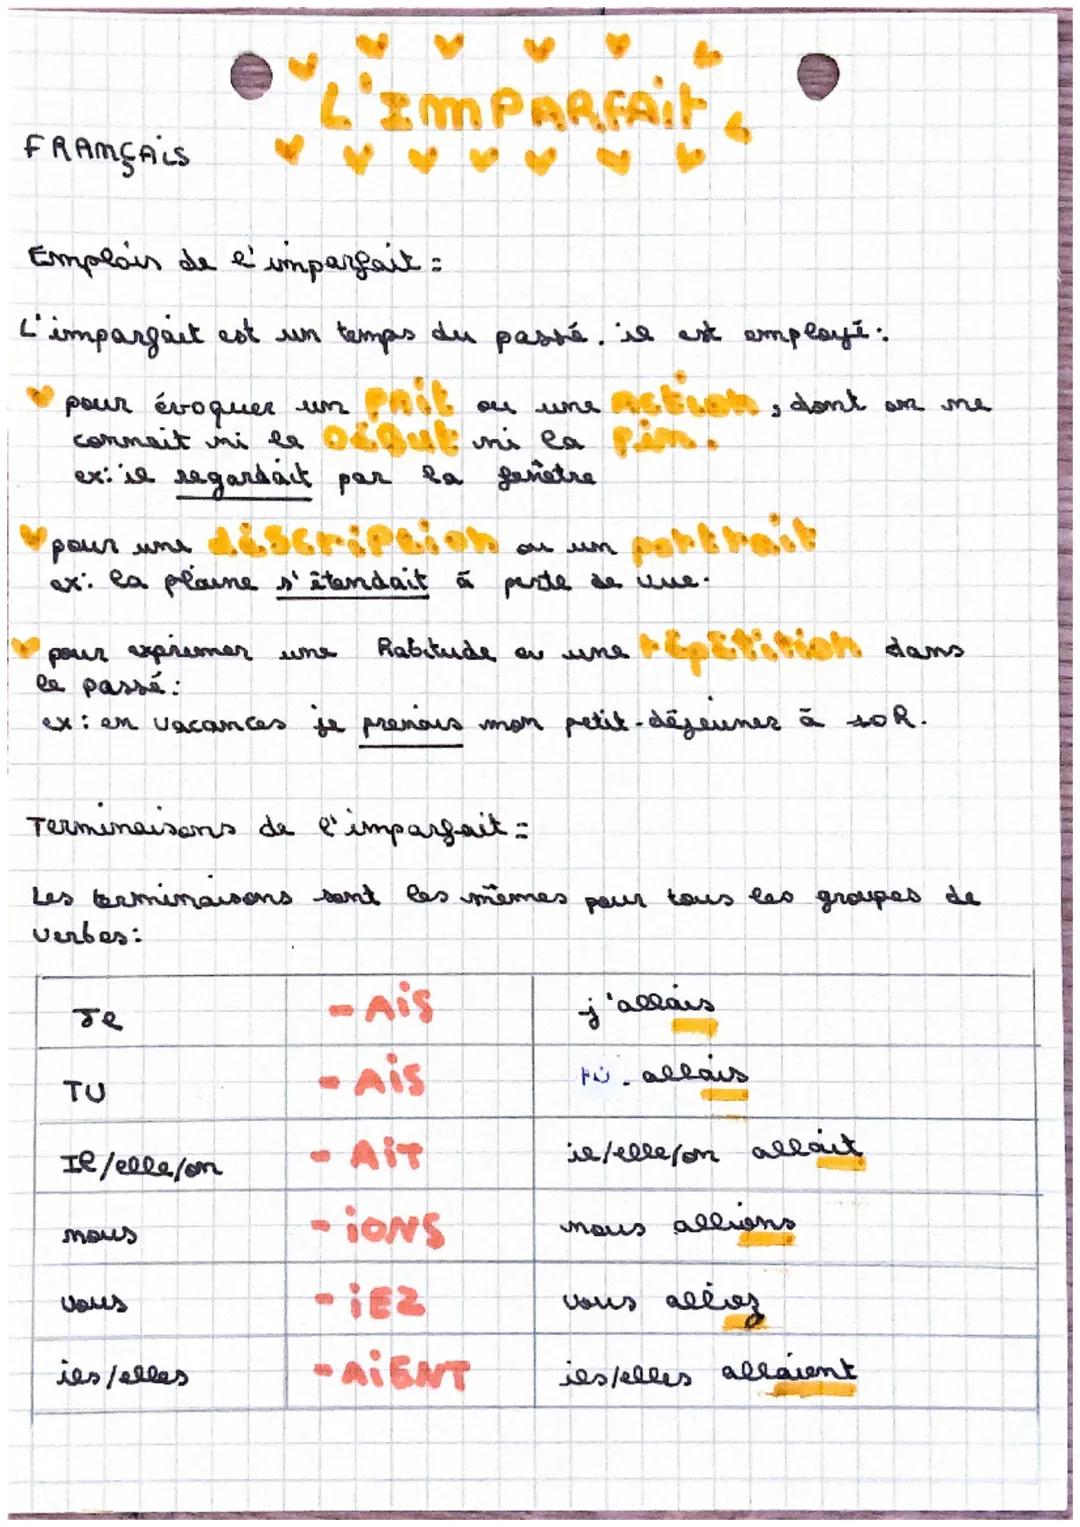 L'IMPARFAIT
FRANÇAIS
Emplois de l'imparfait :
L'imparfait est un temps du passé. il est employé :
pour évoquer un fait ou une action, dont on ne
connait ni le début ni la fin.
ex: il regardait par la fenêtre
pour une description ou un portrait
ex: la plaine s'étendait à perte de vue.
pour exprimer une habitude ou une répétition dans
le passé :
ex : en vacances je prenais mon petit-déjeuner à 10h.
Terminaisons de l'imparfait :
Les terminaisons sont les mêmes pour tous les groupes de
verbes :
Je -AIS j'allais
TU -AIS tu allais
Il/elle/on -AIT il/elle/on allait
nous -IONS nous allions
vous -IEZ vous alliez
ils/elles -AIENT ils/elles allaient